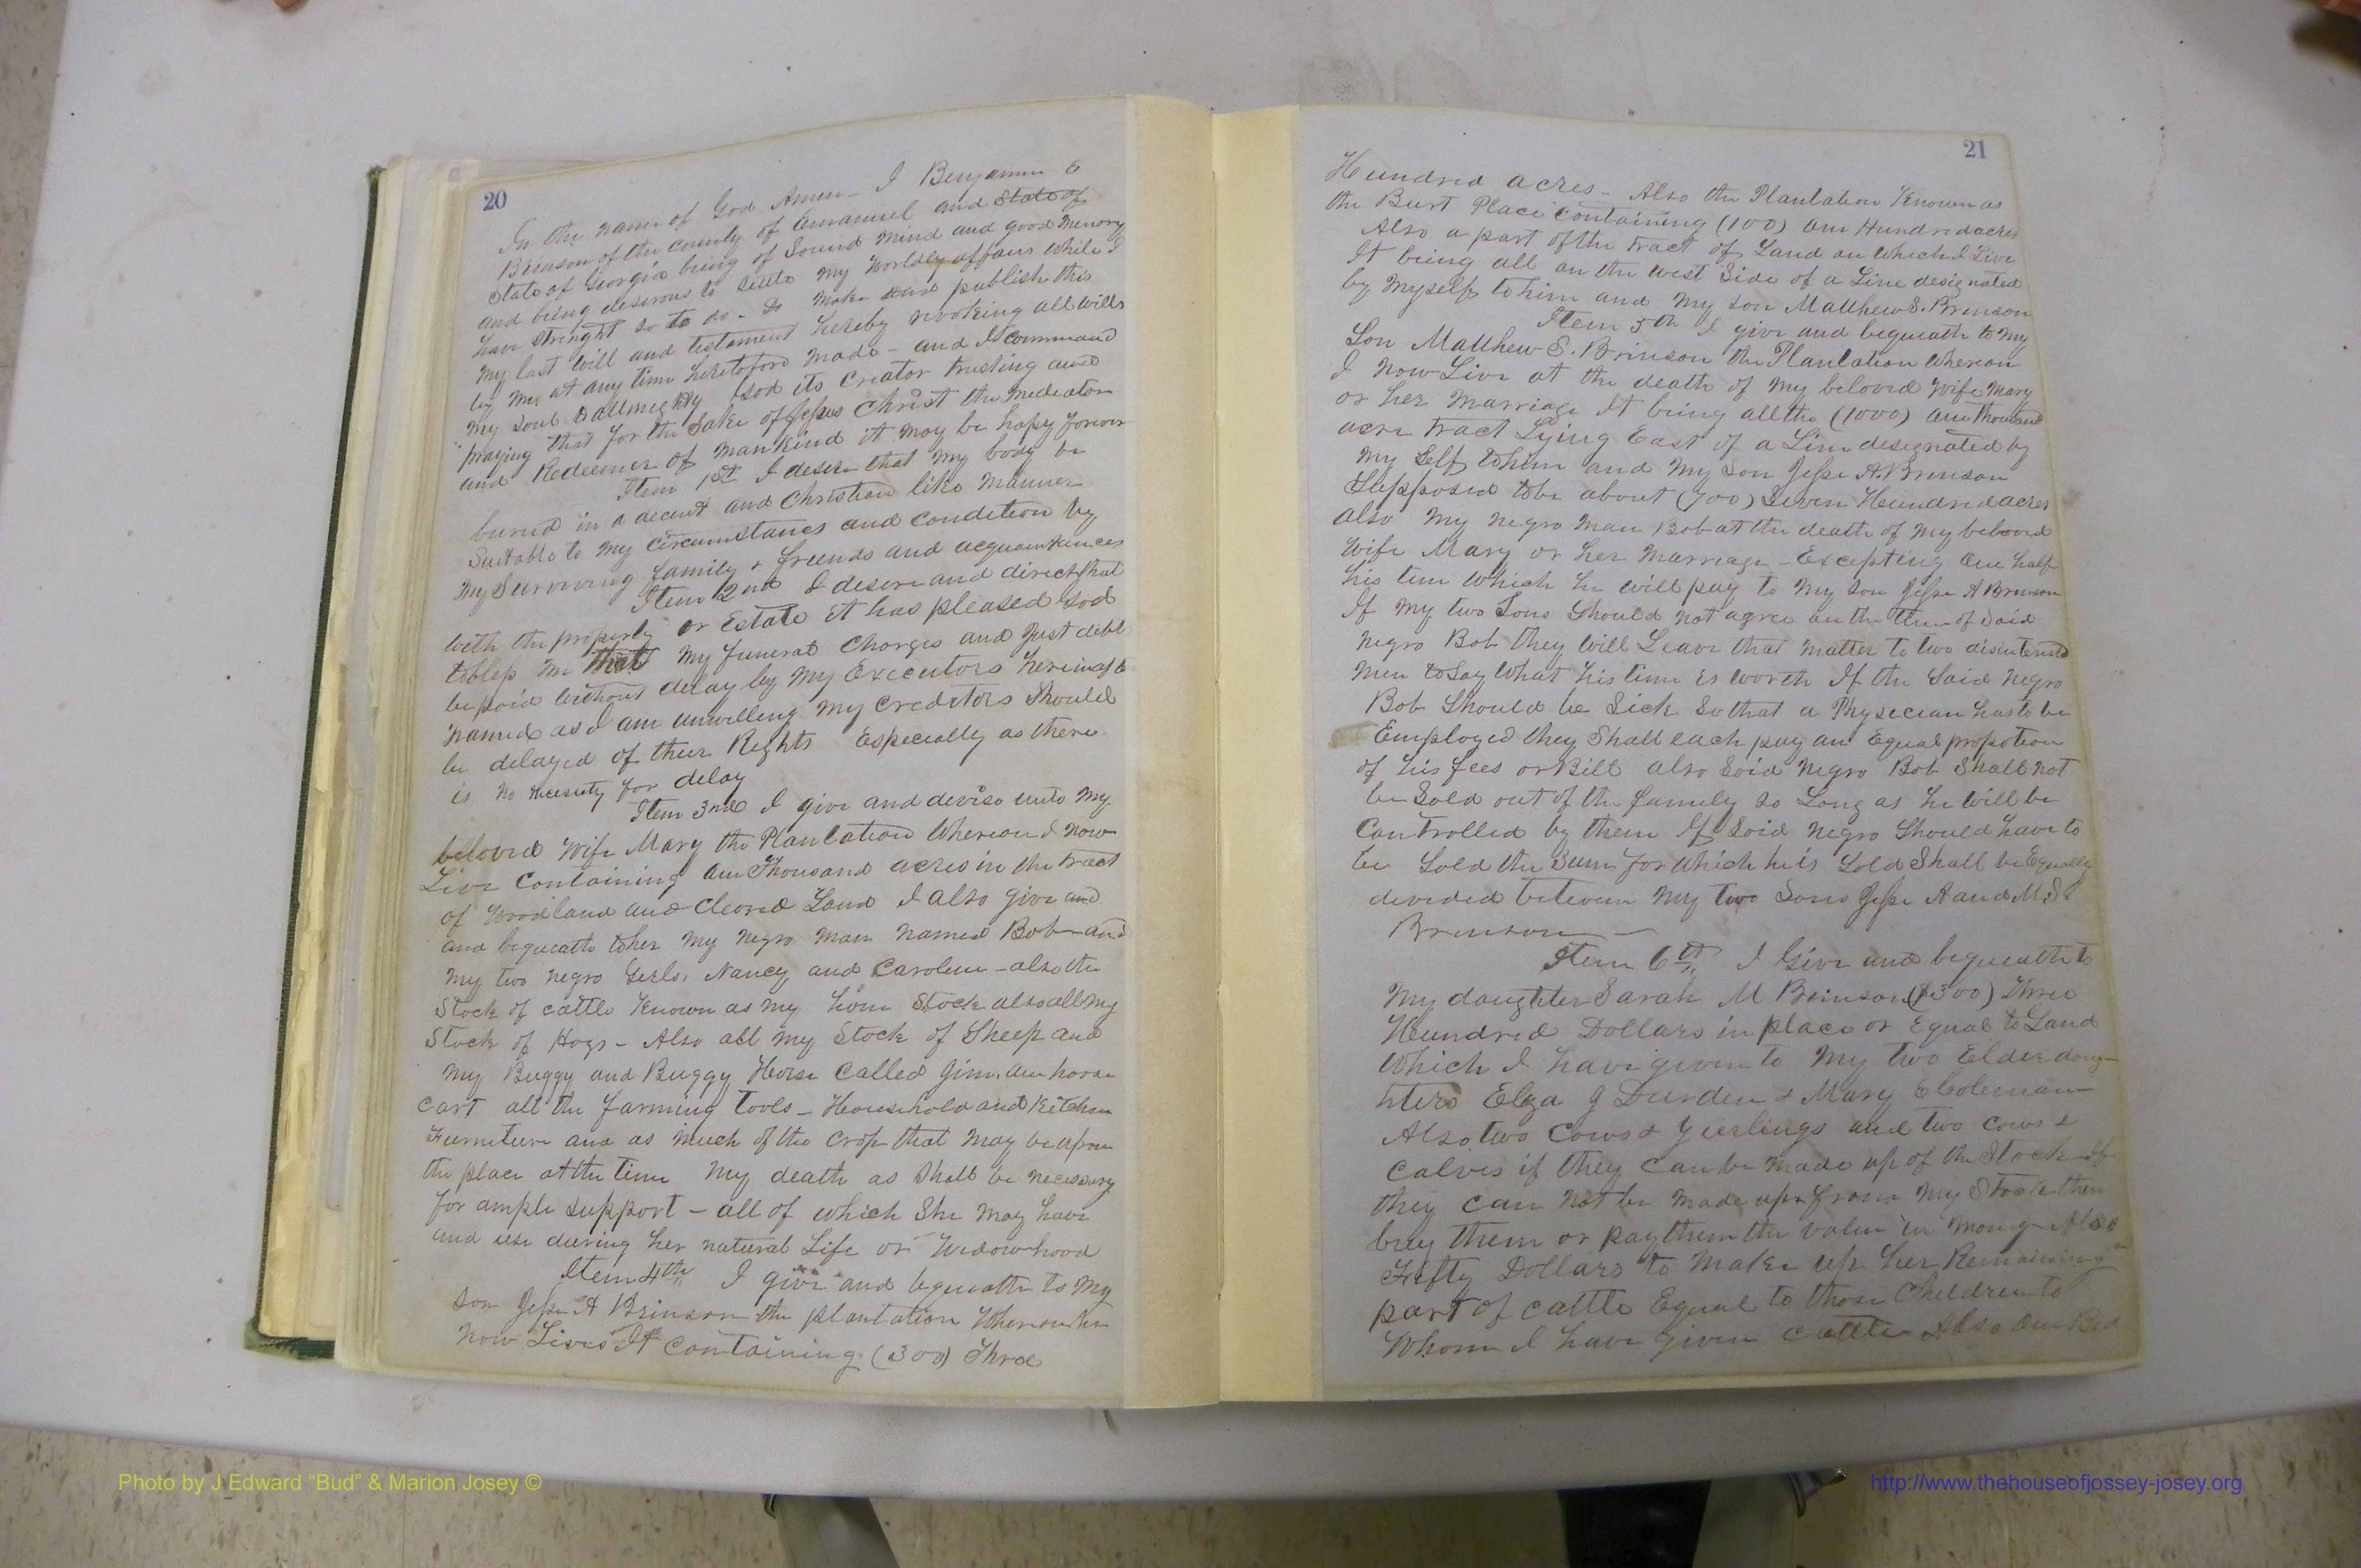 20
In the name of God Amen - I Benjamin E
Brinson of the County of Emanuel and State of
State of Georgia being of Sound Mind and good Memory
and being desirous to Settle My Worldly affairs While I
have Strenght so to do - Do Make and publish this
My last Will and testament hereby revoking all Wills
by Me at any time heretofore Made - and I Command
My Soul to allmighty God its Creator trusting and
praying that for the Sake of Jesus Christ the Mediator
and Redeemer of Mankind it May be hapy forever
Item 1st I desire that My body be
buried in a decent and Christian like Manner
Suitable to My Circumstances and Condition by
My Surviving family & friends and acquaintances
Item 2nd I desire and direct that
with the property or Estate it has pleased God
to bless me that My funeral Charges and Just debts
be paid without delay by My Executors hereinafter
named as I am unwilling My Creditors Should
be delayed of their Rights Especially as there
is no necessity for delay
Item 3rd I give and devise unto My
beloved Wife Mary the Plantation Whereon I now
Live Containing one Thousand acres in the tract
of Woodland and Cleored Land I also give and
and bequeath to her My negro Man named Bob and
My two negro Girls, Nancy and Caroline - also the
Stock of cattle Known as my hom Stock also all My
Stock of Hogs - Also all My Stock of Sheep and
My Buggy and Buggy Horse Called Jim. one horse
Cart all the farming tools - Household and Kitchen
Furniture and as much of the Crop that May be upon
the place at the time My death as Shall be necessary
for ample support - all of which She May have
and use during her natural Life or Widowhood
Item 4th I give and bequeath to My
Son Jesse A Brinson the plantation Whereon he
now Lives It Containing (300) Three
21
Hundred acres - Also the Plantation Known as
the Burt Place Containing (100) one Hundred acres
Also a part of the tract of Land on Which I Live
It being all on the West Side of a Line designated
by Myself to him and My Son Matthew S. Brinson
Item 5th I give and bequeath to My
Son Matthew S. Brinson the Plantation Whereon
I now Live at the death of My beloved Wife Mary
or her Marriage It being all the (1000) one Thousand
acre tract Lying East of a Line designated by
My Self to him and My Son Jesse A. Brinson
Supposed to be about (700) Seven Hundred acres
also My negro Man Bob at the death of My beloved
Wife Mary or her Marriage - Excepting one half
his time Which he will pay to My Son Jesse A Brinson
If My two Sons Should not agree on the time of Said
negro Bob they Will Leave that Matter to two disinterested
Men to Say What his time is worth If the Said negro
Bob Should be Sick So that a Physician has to be
Employed they Shall each pay an Equal propotion
of his fees or Bill also Said negro Bob Shall not
be Sold out of the family So Long as he will be
Controlled by them If Said negro Should have to
be Sold the Sum for Which he is Sold Shall be Equally
divided between My two Sons Jesse A and M, S.
Brinson
Item 6th I Give and bequeath to
My daughter Sarah M Brinson ($300) Three
Hundred Dollars in place or Equal to Land
Which I have given to My two Elder daug-
hters Elza J Durden & Mary E Coleman
Also two Cows & Yearlings and two Cows &
Calves if they Can be Made up of the Stock If
they Can not be Made up from My Stock then
buy them or pay them the value in Money Also
Fifty Dollars to Make up her Remaining
part of cattle Equal to those Children to
Whom I have given Cattle Also one Bed
Photo by J Edward “Bud” & Marion Josey ©
http://www.thehouseofjossey-josey.org